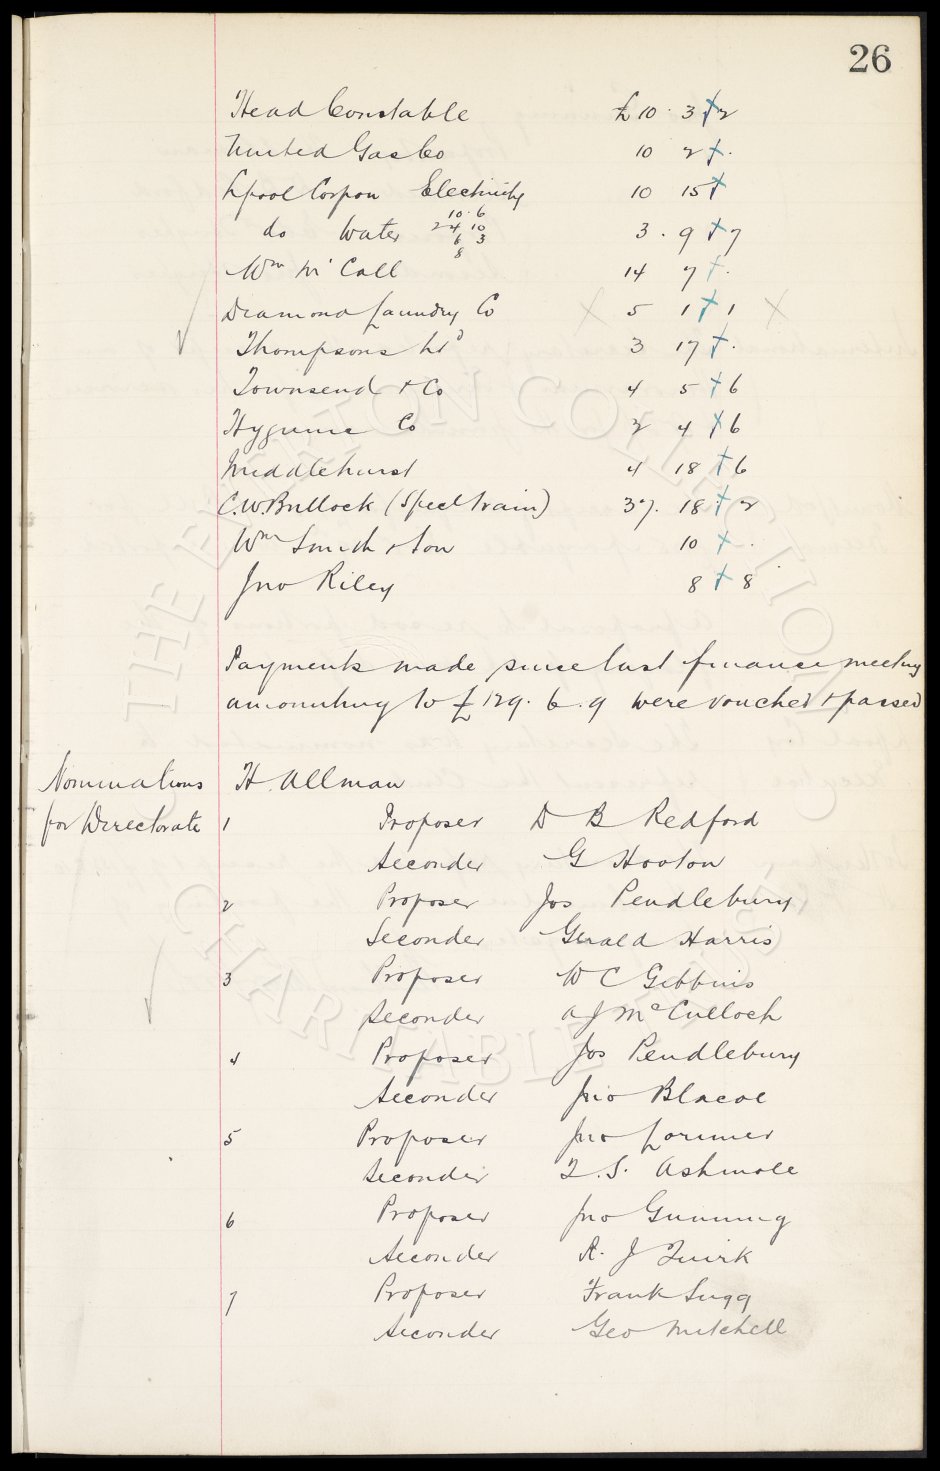 26
Head Constable £10 . 3 . 2
United Gas Co 10 2 .
Lpool Corpon Electricity 10 15
do Water 3 . 9 7
10 . 6
2 4 10
6 3
8
Wm Mc Call 14 7 .
Diamond Laundry Co 5 1 1
Thompsons Ltd 3 17 .
Townsend & Co 4 5 6
Hygienic Co 2 4 6
Middlehurst 4 18 6
C.W. Bullock (Specl train) 37. 18 2
Wm Smith & Son 10 .
Jno Riley 8 8
Payments made since last finance meeting
amounting to £129. 6. 9 were vouched & passed
Nominations H. Allman
for Directorate 1 Proposer D B Redford
Seconder G Hooton
2 Proposer Jos Pendlebury
Seconder Gerald Harris
3 Proposer W C Gibbins
Seconder A J McCulloch
4 Proposer Jos Pendlebury
Seconder Jno Blacoe
5 Proposer Jno Lorimer
Seconder T. S. Ashmole
6 Proposer Jno Gunning
Seconder R. J Quirk
7 Proposer Frank Sugg
Seconder Geo Mitchell
THE EVERTON COLLECTION
CHARITABLE TRUST